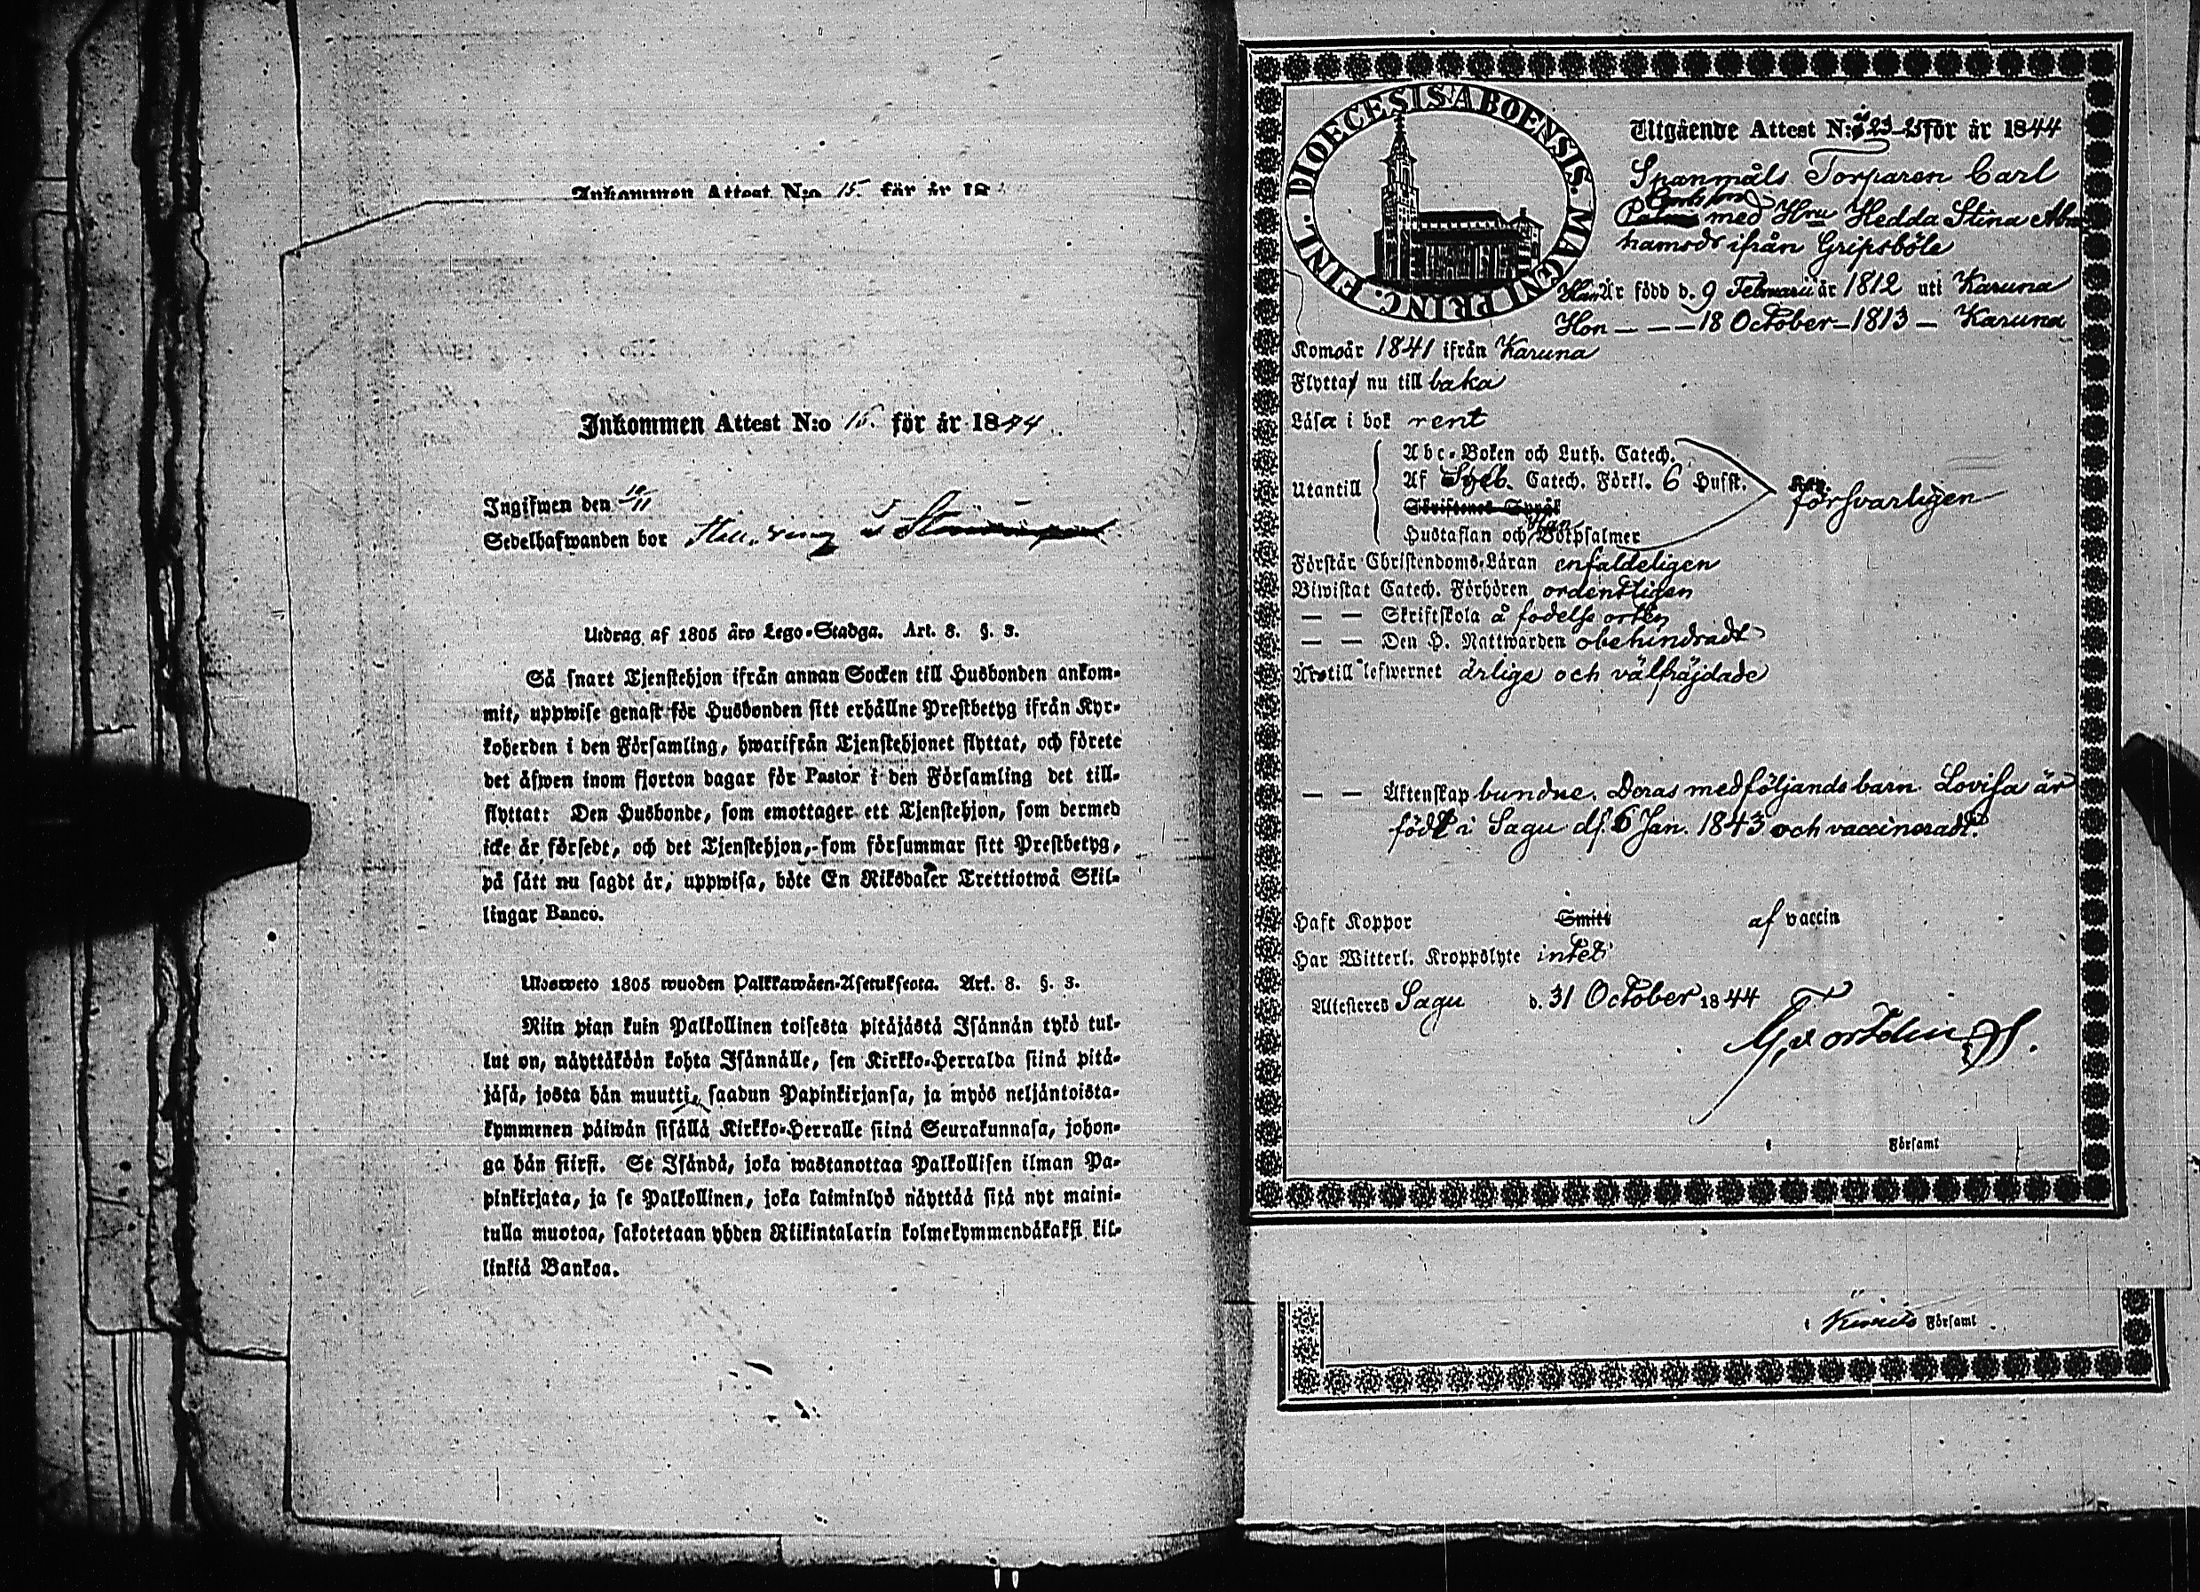 Inkommen Attest N:o 15. för år 18
Inkommen Attest N:o 15. för år 1844
Ingifwen den 10/11
Sedelhafwanden bor
Utdrag af 1805 års Lego-Stadga. Art. 8. §. 3.
Så snart Tjenstehjon ifrån annan Socken till Husbonden ankom-
mit, uppwise genast för Husbonden sitt erhållne Prestbetyg ifrån Kyr-
koherden i den Församling, hwarifrån Tjenstehjonet flyttat, och förete
det äfwen inom fjorton dagar för Pastor i den Församling det till-
flyttat: Den Husbonde, som emottager ett Tjenstehjon, som dermed
icke är försedt, och det Tjenstehjon, som försummar sitt Prestbetyg,
på sätt nu sagdt är, uppwisa, böte En Riksdaler Trettiotwå Skil-
lingar Banco.
Ulosweto 1805 wuoden Palkkawäen-Asetuksesta. Art. 8. §. 3.
Niin pian kuin Palkollinen toisesta pitäjästä Isännän tykö tul-
lut on, näyttäköön kohta Isännälle, sen Kirkko-Herralda siinä pitä-
jäsä, josta hän muutti, saadun Papinkirjansa, ja myös neljäntoista-
kymmenen päiwän sisällä Kirkko-Herralle siinä Seurakunnasa, johon-
ga hän siirsi. Se Isändä, joka wastanottaa Palkollisen ilman Pa-
pinkirjata, ja se Palkollinen, joka laiminlyö näyttää sitä nyt maini-
tulla muotoa, sakotetaan yhden Riikintalarin kolmekymmendäkaksi kil-
linkiä Bankoa.
DIOECESIS ABOENSIS. MAGNI PRINC. FINL.
Utgående Attest N:o 23-25 för år 1844
Spanmåls Torparen Carl
Carlsson
med Hru Hedda Stina Abra
hamsdr ifrån Gripsböle
Han Är född d. 9 Februarii år 1812 uti Karuna
Hon — — — 18 October — 1813 — Karuna
Kom år 1841 ifrån Karuna
Flytta nu till baka
Läsa i bok rent
Utantill
Abc-Boken och Luth. Catech.
Af Sveb. Catech. Förkl. 6 Hufst.
Skriftenes Språk
Hustaflan och Botpsalmer
försvarligen
Förstår Christendoms-Läran enfaldeligen
Biwistat Catech. Förhören ordentligen
— — Skriftskola å födelse orten
— — Den H. Nattwarden obehindradt
Äro till lefwernet ärlige och välfräjdade
— — Äktenskap bundne. Deras medföljande barn Lovisa är
född i Sagu d. 6 Jan. 1843 och vaccineradt.
Haft Koppor Smitt af vaccin
Har Witterl. Kroppslyte intet
Attesteras Sagu d. 31 October 1844
i Församl
i Kimito Församl